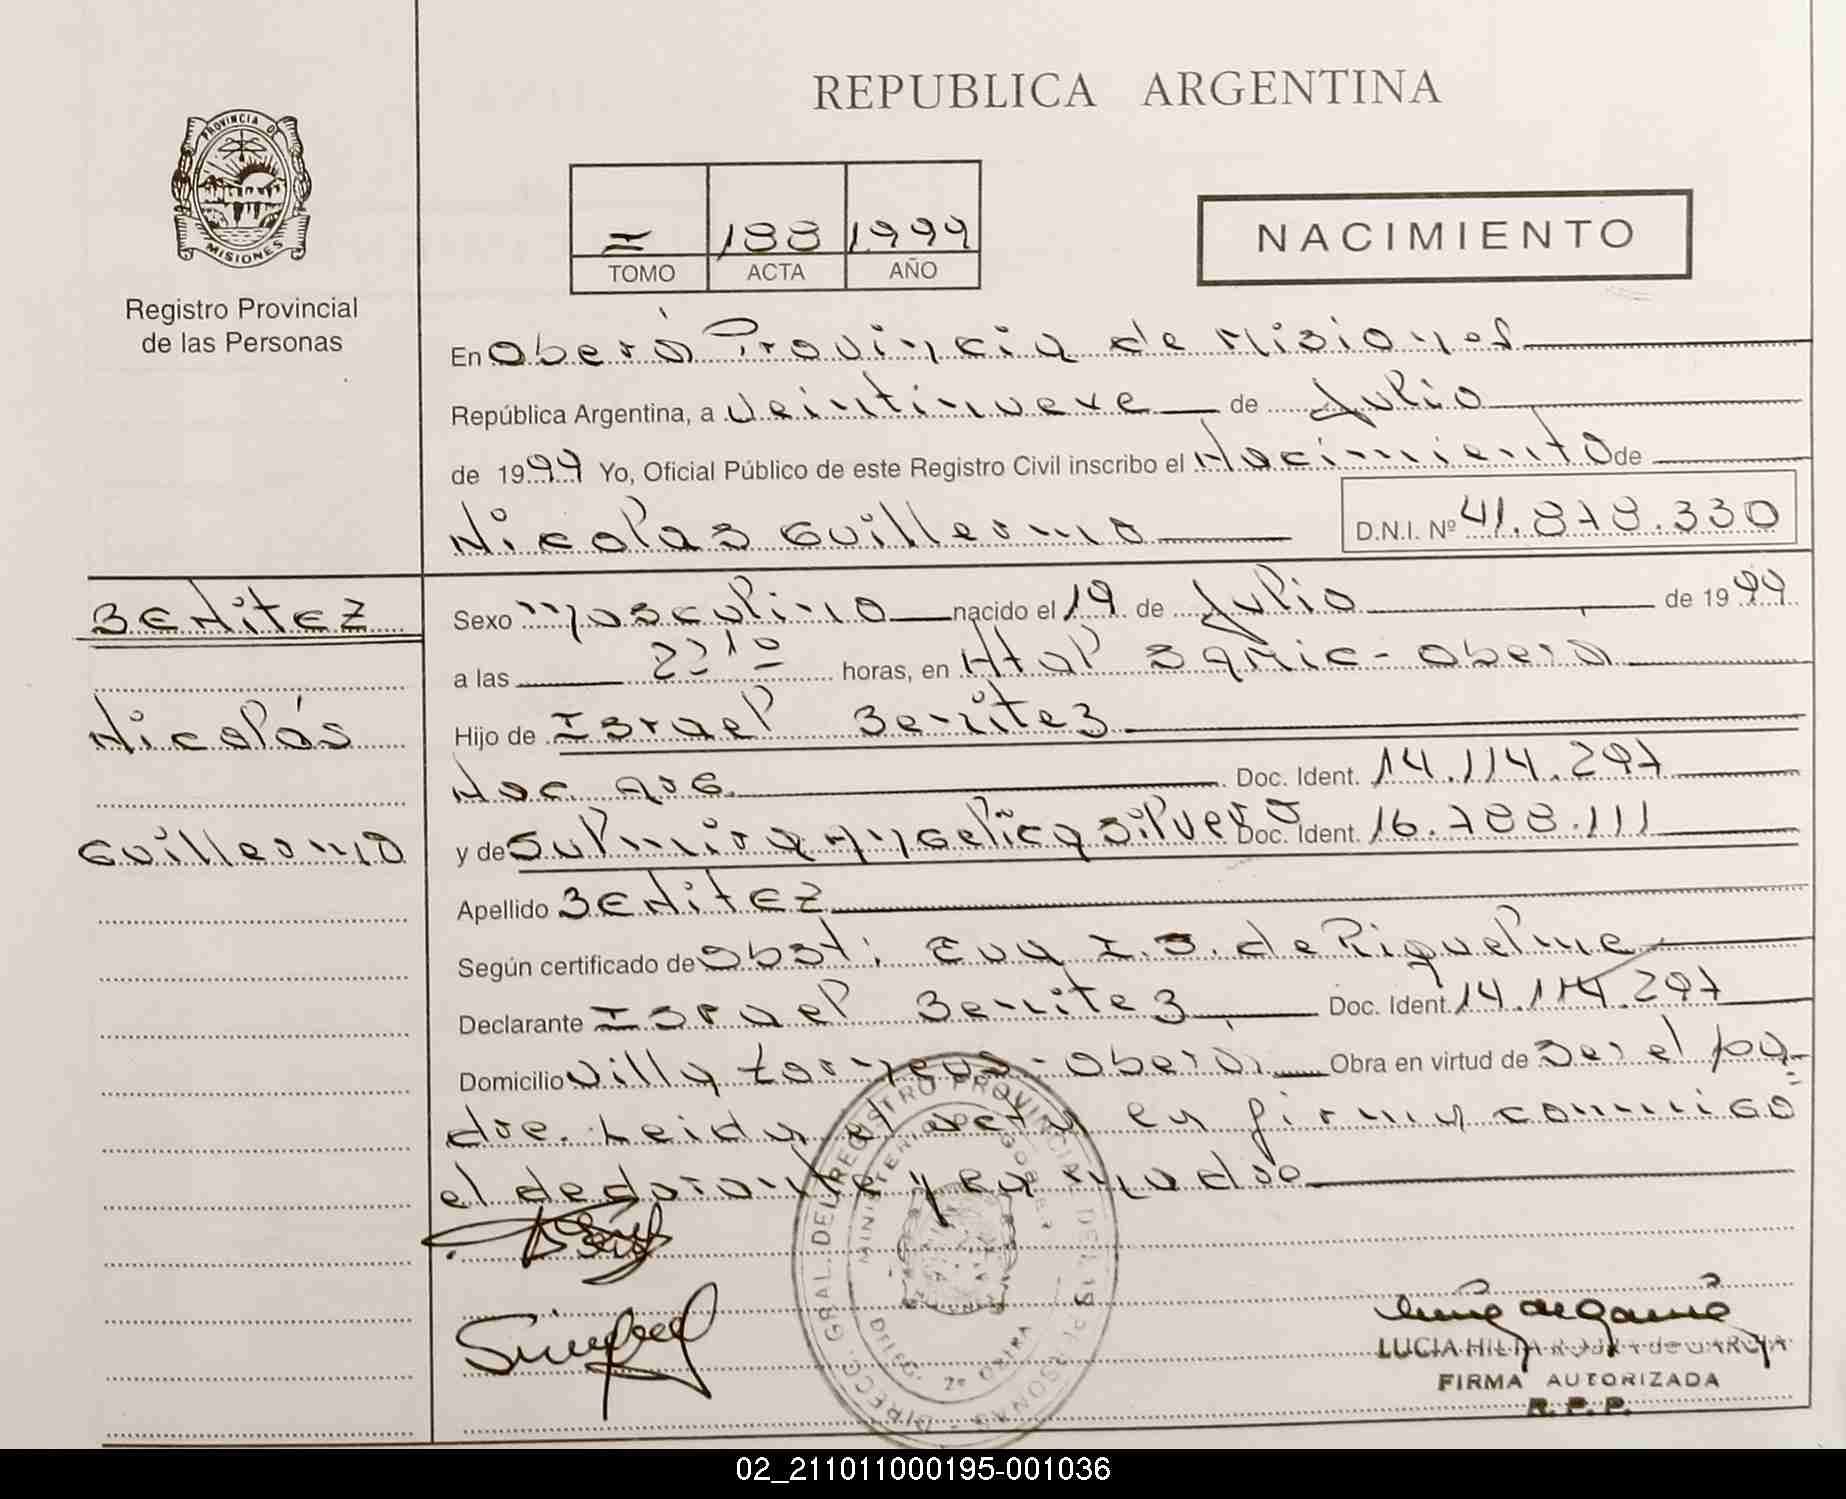 REPUBLICA ARGENTINA
PROVINCIA DE
MISIONES
Registro Provincial
de las Personas
I 188 1999
TOMO ACTA AÑO
NACIMIENTO
En Oberá Provincia de Misiones
República Argentina, a veintinueve de Julio
de 1999 Yo, Oficial Público de este Registro Civil inscribo el Nacimiento de
Nicolas Guillermo D.N.I. Nº 41.878.330
BENITEZ
Nicolás
Guillermo
Sexo masculino nacido el 19 de Julio de 1999
a las 22 10 horas, en Htal Samic - Oberá
Hijo de Israel Benitez
Nac. arg. Doc. Ident. 14.114.297
y de Sulmira Angelica Silvero Doc. Ident. 16.788.111
Apellido BENITEZ
Según certificado de Obst: Eva I. S. de Riquelme
Declarante Israel Benitez Doc. Ident. 14.114.297
Domicilio Villa Torneus - Oberá Obra en virtud de ser el pa-
dre. Leida el acta la firma conmigo
el declarante y la madre
DIRECC. GRAL. DEL REGISTRO PROVINCIAL DE LAS PERSONAS
MINISTERIO DE GOBIER
DELEG. 2ª OBERA
LUCIA HILDA de GARCIA
FIRMA AUTORIZADA
R.P.P.
02_211011000195-001036